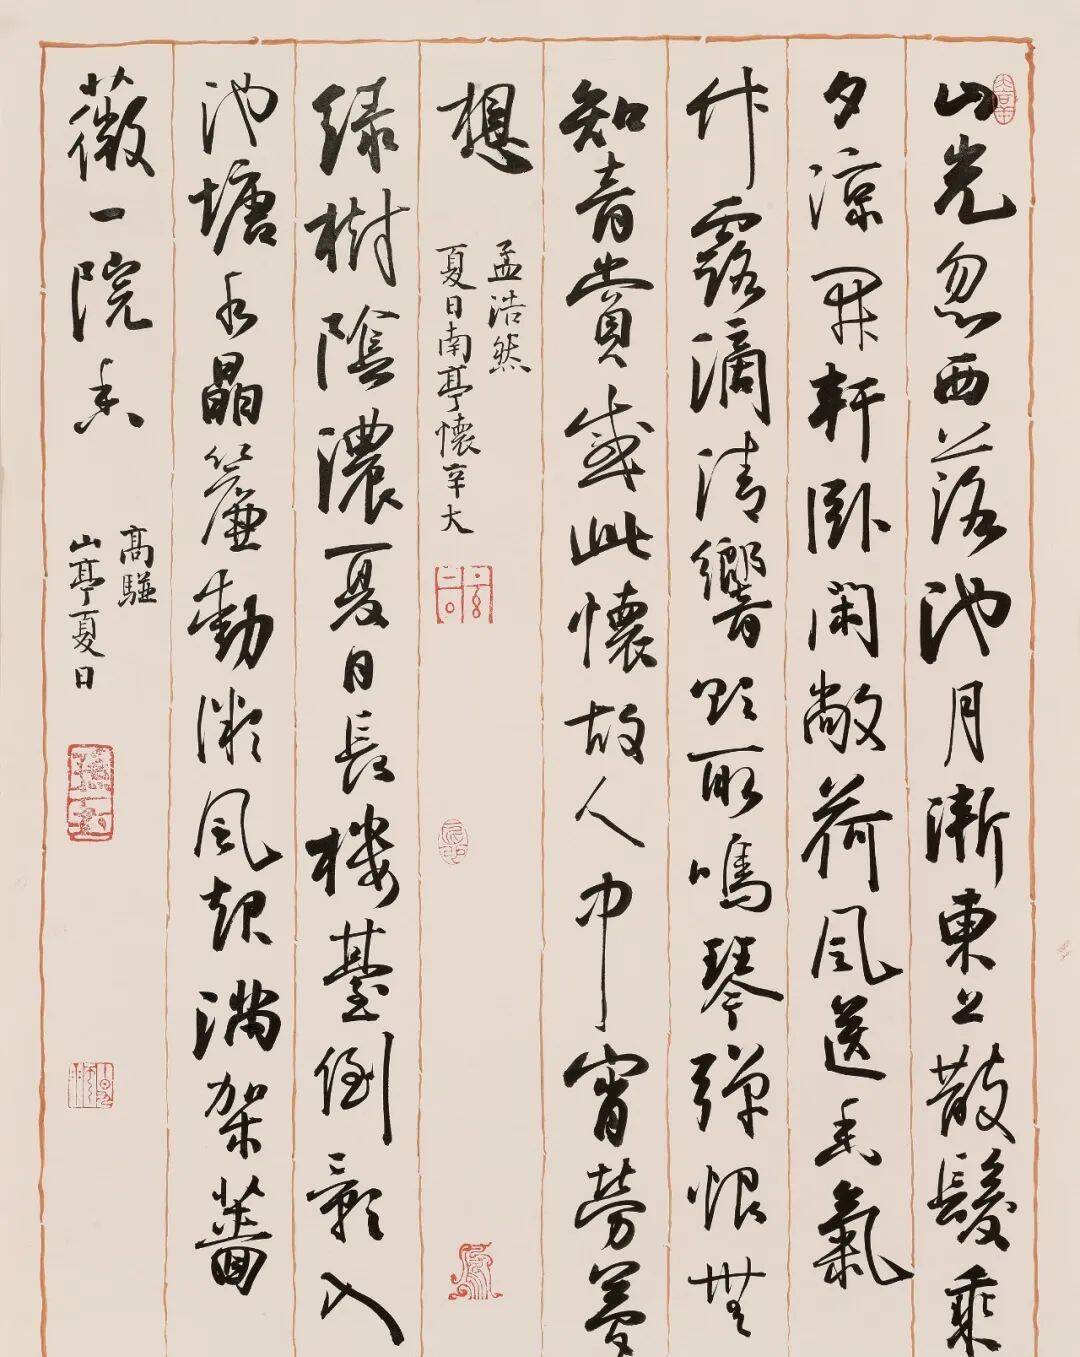 山光忽西落池月漸東上散髮乘
夕涼開軒臥閑敞荷風送香氣
竹露滴清響欲取鳴琴彈恨無
知音賞感此懷故人中宵勞夢
想
孟浩然
夏日南亭懷辛大
綠樹陰濃夏日長樓臺倒影入
池塘水晶簾動微風起滿架薔
薇一院香
高駢
山亭夏日